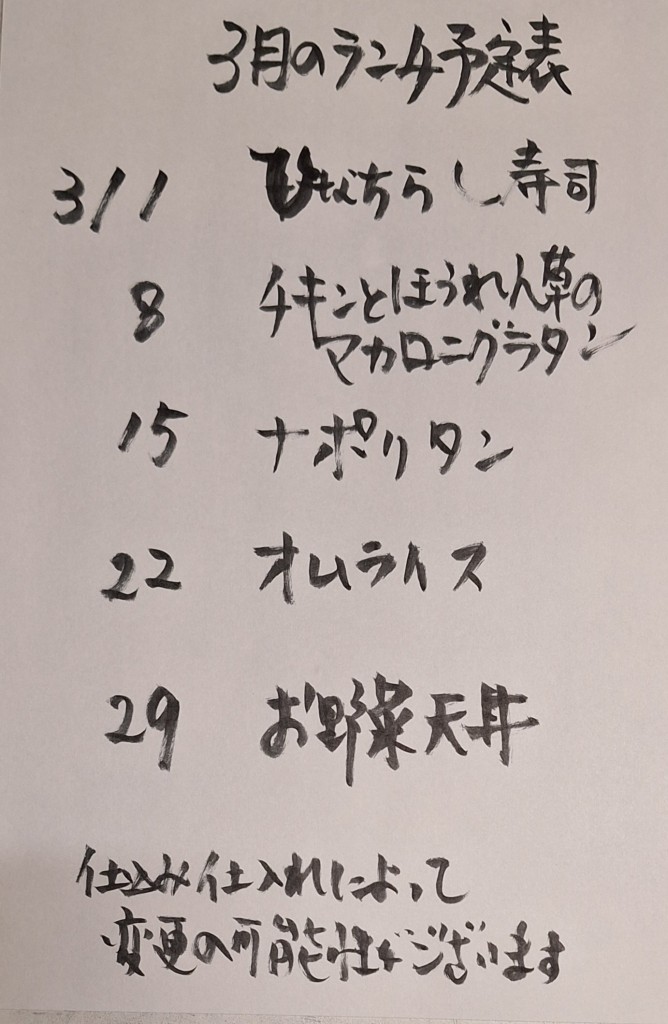 3月のランチ予定表
3/1 ひなちらし寿司
8 チキンとほうれん草の
マカロニグラタン
15 ナポリタン
22 オムライス
29 お野菜天丼
仕込み仕入れによって
変更の可能性がございます